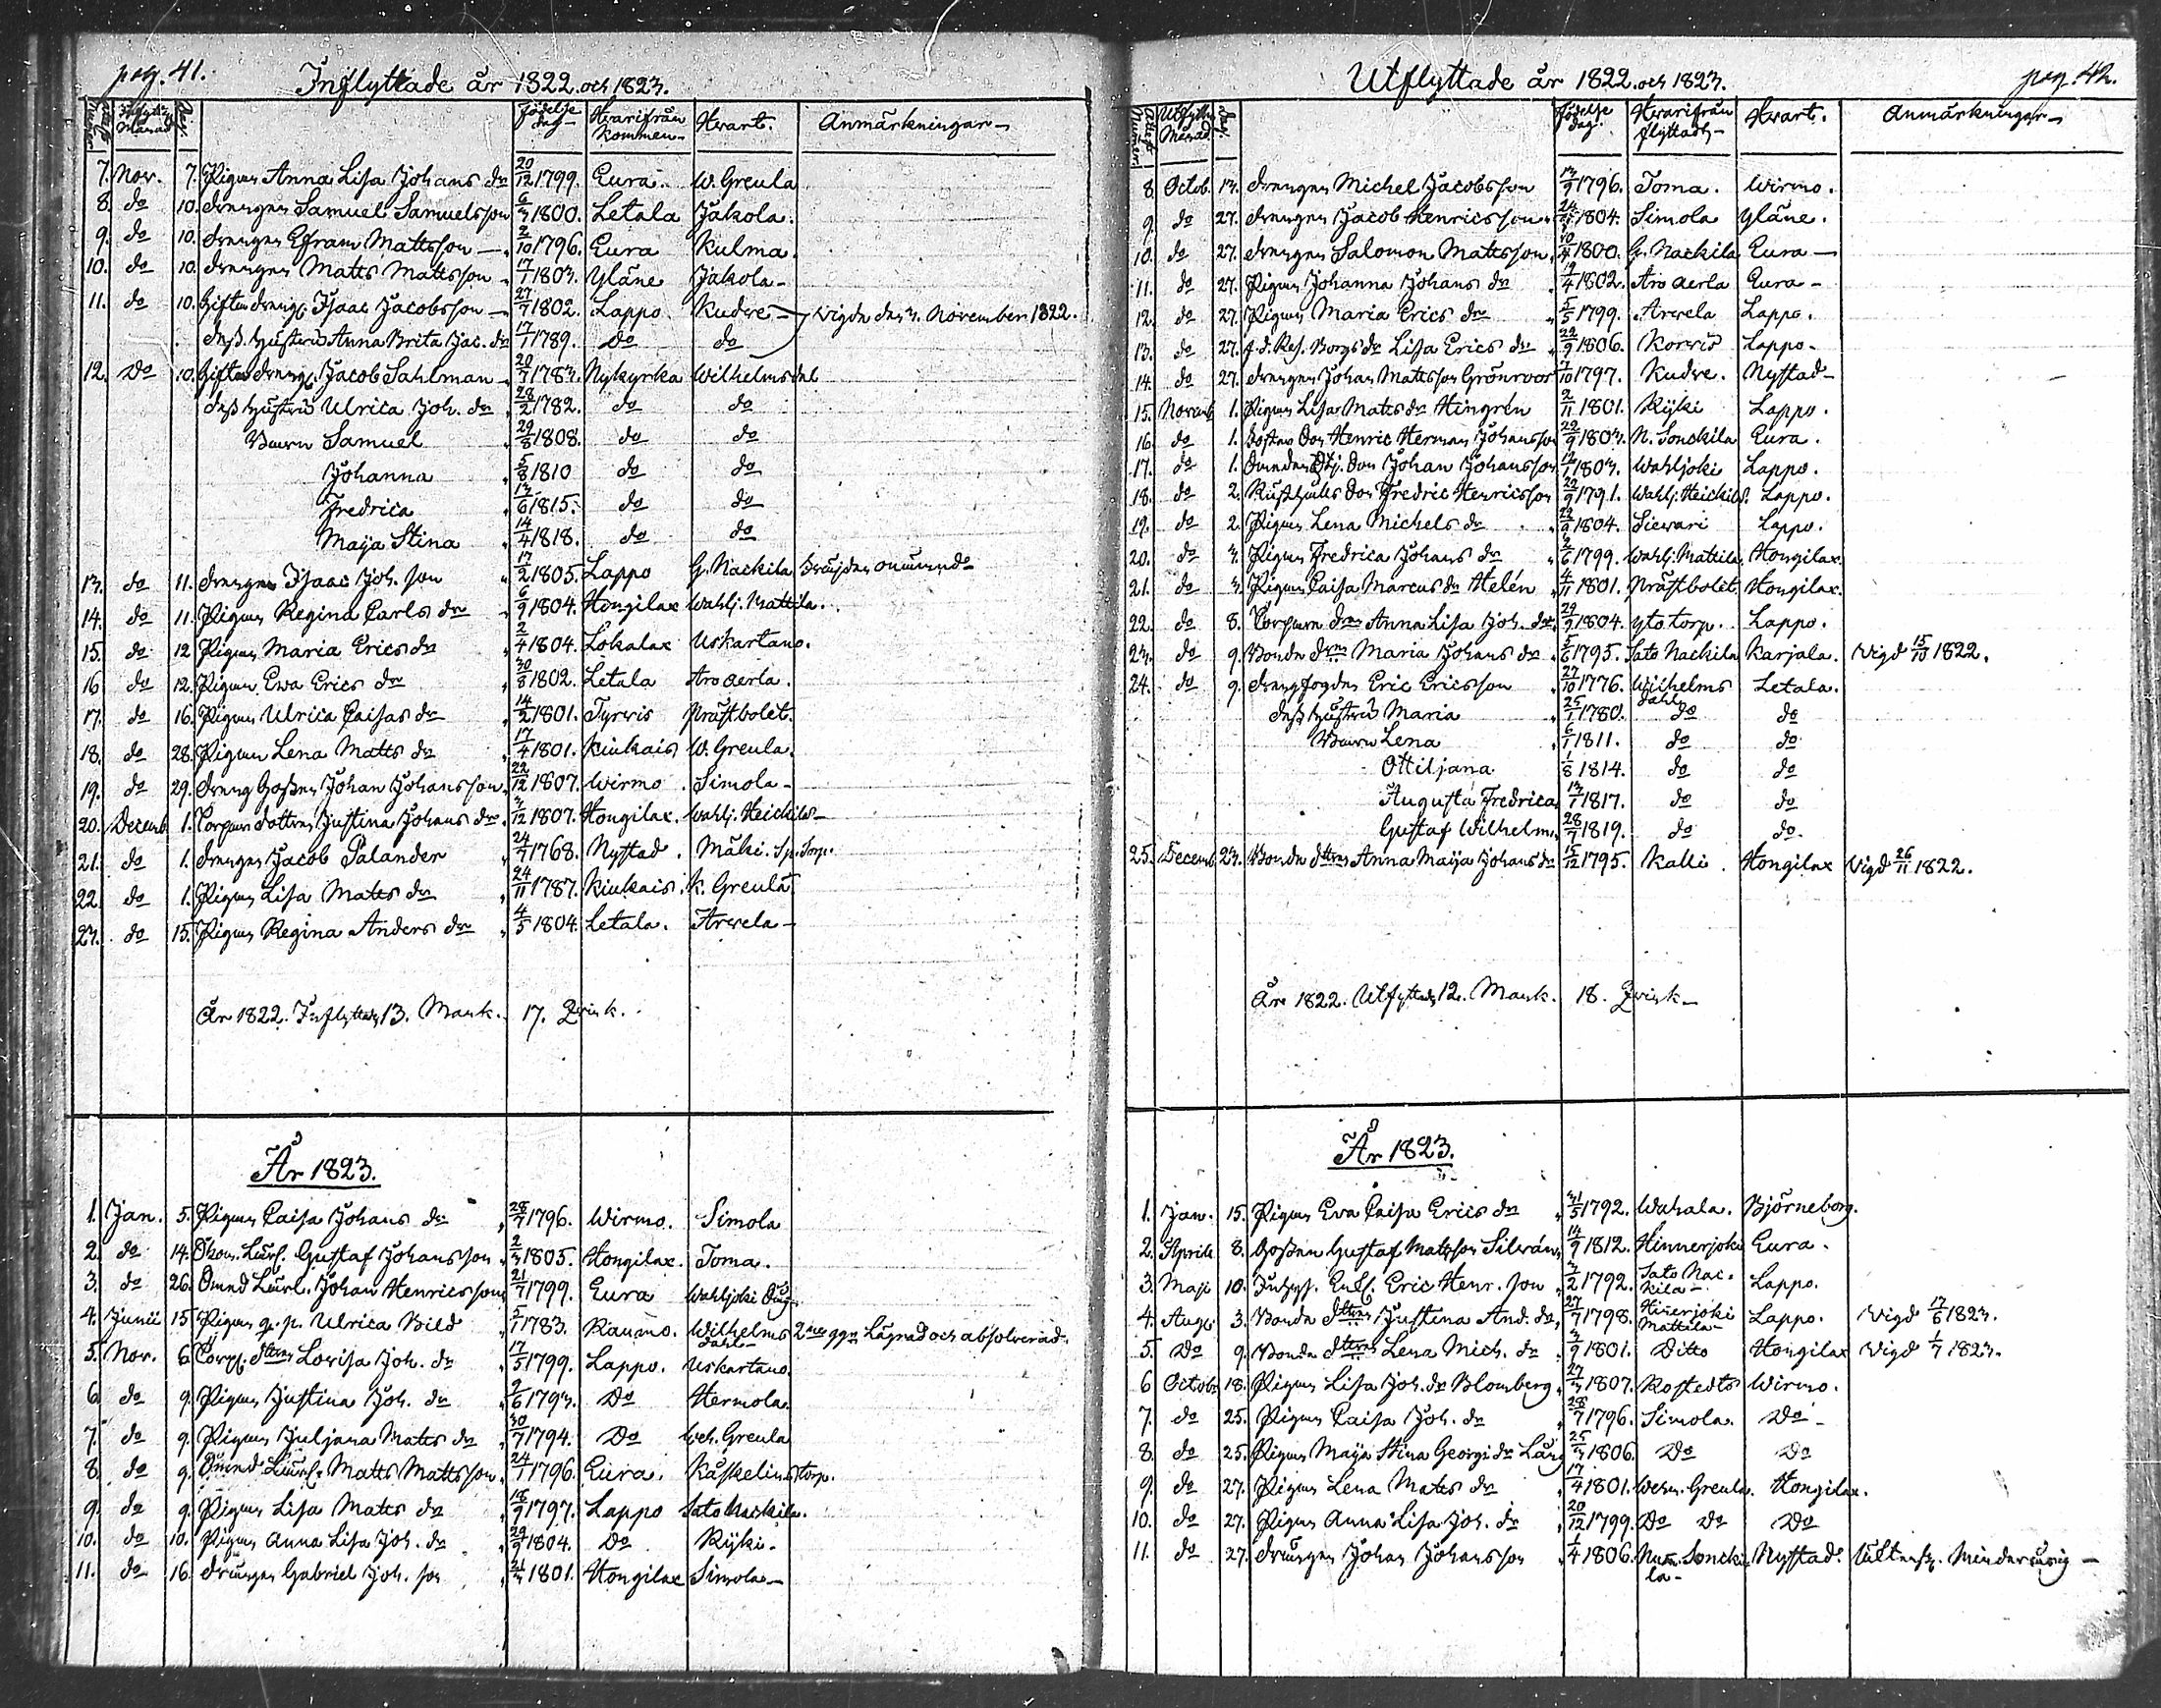 pag. 41.
Inflyttade år 1822. och 1823.
Födelse dag Hvarifrån kommen Hvart. Anmärkningar
7. Nov. 7. Pigan Anna Lisa Johans dr 20/12 1799. Eura. W. Greula
8. do 10. drengen Samuel Samuelsson 6/3 1800. Letala Jakola.
9. do 10. drengen Efraim Mattsson 2/10 1796. Eura Kulma.
10. do 10. drengen Matts Mattsson 17/1 1803. Yläne Jakola
11. do 10. Giftes drengen Isaac Jacobsson 27/7 1802. Lappo Kudve Vigde den 3. November 1822.
dess hustru Anna Brita Jac. dr 17/1 1789. do do
12. do 10. Giftes drengen Jacob Sahlman 20/7 1783. Nykyrka Wilhelmsdal
dess hustru Ulrica Joh. dr 28/2 1782. do do
Barn Samuel 29/8 1808. do do
Johanna 5/8 1810 do do
Fredrica 13/6 1815. do do
Maija Stina 14/4 1818. do do
13. do 11. drengen Isaac Joh. son 17/2 1805. Lappo G. Nackila
14. do 11. Pigan Regina Carls dr 6/9 1804. Hongilax Wahlj. Mattila.
15. do 12 Pigan Maria Erics dr 2/4 1804. Lokalax Uskartano.
16 do 12. Pigan Ewa Erics dr 30/8 1802. Letala Aro aerla.
17. do 16. Pigan Ulrica Caisas dr 14/2 1801. Tyrvis Prästbolet.
18. do 28. Pigan Lena Matts dr 17/4 1801. Kiukais W. Greula.
19. do 29. dreng Gossen Johan Johansson 22/12 1807. Wirmo Simola
20. Decemb. 1. Torpare dottren Justina Johans dr 3/12 1807. Hongilax. Wahlj. Heickilä
21. do 1. drengen Jacob Palander 24/7 1768. Nystad. Mälki. Sp. torp.
22. do 1. Pigan Lisa Matts dr 24/11 1787. Kiukais. K. Greula
23. do 15. Pigan Regina Anders dr 4/5 1804. Letala. Arvela
År 1822. Inflyttade 13. Mank. 17. Qvink.
År 1823.
1. Jan. 5. Pigan Caisa Johans dr 28/7 1796. Wirmo. Simola
2. do 14. Gustaf Johansson 2/3 1805. Hongilax. Toma.
3. do 26. Johan Henricsson 21/7 1799. Eura Wahljoki
4. Junii 15 Pigan q. p. Ulrica Bild 5/1 1783. Raumo. Wilhelms dahl 2ne ggr Lägrad och absolverad.
5. Nov. 6. Torp. dttren Lovisa Joh. dr 17/5 1799. Lappo. Uskartano.
6 do 9. Pigan Justina Joh. dr 9/6 1793. Do Hermola.
7. do 9. Pigan Juljana Matts dr 30/7 1794. Do Weh. Greula
8. do 9. Matts Mattsson 24/1 1796. Eura. Käskelins torp.
9. do 9. Pigan Lisa Matts dr 18/9 1797. Lappo Sato Nackila.
10. do 10. Pigan Anna Lisa Joh. dr 29/9 1804. Do Kijki.
11. do 16. drängen Gabriel Joh. son 21/3 1801. Hongilax Simola
Utflyttade år 1822. och 1823. pag. 42.
Födelse dag. Hvarifrån flyttade Hvart. Anmärkningar
8. Octob. 13. drengen Michel Jacobsson 13/9 1796. Toma. Wirmo.
9. do 27. drengen Jacob Henricsson 1804. Simola Yläne.
10. do 27. drengen Salomon Mattsson 1800. G. Nackila Eura
11. do 27. Pigan Johanna Johans dr 1802. Aro aerla Eura
12. do 27. Pigan Maria Erics dr 5/5 1799. Arvela Lappo.
13. do 27. Lisa Erics dr 22/9 1806. Korvis Lappo.
14. do 27. drengen Johan Mattsson Grönroos 1797. Kudve. Nystad
15. Novemb 1. Pigan Lisa Matts dr Hingrén 2/11 1801. Kijki Lappo.
16. do 1. Henric Herman Johansson 22/9 1803. N. Sonckila Eura.
17. do 1. Johan Johansson 1803. Wahljoki Lappo.
18. do 2. Rusthålls Son Fredric Henricsson 22/9 1791. Wahlj. Heickilä. Lappo.
19. do 2. Pigan Lena Michels dr 22/9 1804. Siewari Lappo.
20. do 3. Pigan Fredrica Johans dr 1799. Wahlj. Mattila. Hongilax.
21. do 3. Pigan Caisa Marcus dr Helén 4/11 1801. Prästbolet Hongilax.
22. do 8. Torpare dttren Anna Lisa Joh. dr 29/9 1804. Yto torp. Lappo.
23. do 9. Bonde dttren Maria Johans dr 5/6 1795. Sato Nackila Karjala. Vigd 15/10 1822.
24. do 9. drengfogden Eric Ericsson 27/10 1776. Wilhelms dahl Letala.
dess hustru Maria 25/1 1780. do do
Barn Lena 6/1 1811. do do
Ottiljana 1/8 1814. do do
Augusta Fredrica 13/1 1817. do do
Gustaf Wilhelm 28/7 1819. do do.
25. Decemb 23. Bonde dttren Anna Maija Johans dr 15/12 1795. Kalli. Hongilax Vigd 26/11 1822.
År 1822. Utflyttade 12. Mank. 18. Qvink
År 1823.
1. Jan. 15. Pigan Eva Caisa Erics dr 31/5 1792. Wahala. Björneborg.
2. April 8. Gossen Gustaf Matsson Silvén 14/9 1812. Hinnerjoki Eura.
3. Maji 10. Eric Henr. son 3/2 1792. Sato Nackila Lappo.
4. Aug. 3. Bonde dttren Justina And. dr 27/7 1798. Hinerjoki Mattila Lappo. Vigd 17/6 1823.
5. Do 9. Bonde dttren Lena Mich. dr 3/9 1801. Ditto Hongilax Vigd 1/7 1823.
6 Octob. 18. Pigan Lisa Joh. dr Blomberg 27/3 1807. Kostedts Wirmo.
7. do 25. Pigan Caisa Joh. dr 28/7 1796. Simola. Do
8. do 25. Pigan Maija Stina Georgs dr Lång 25/3 1806. Do Do
9. do 27. Pigan Lena Matts dr 17/4 1801. Greula. Hongilax.
10. do 27. Pigan Anna Lisa Joh. dr 20/12 1799. Do Do Do
11. do 27. drängen Johan Johansson 1/4 1806. Sonckila Nystad. Minderårig